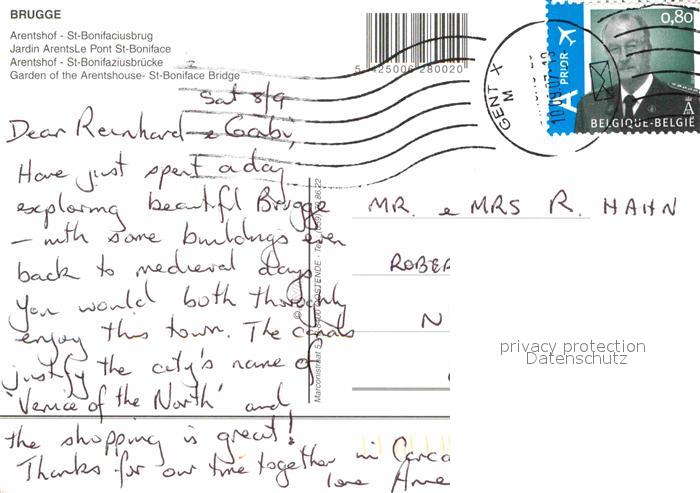 BRUGGE
Arentshof - St-Bonifaciusbrug
Jardin ArentsLe Pont St-Boniface
Arentshof - St-Bonifaziusbrücke
Garden of the Arentshouse- St-Boniface Bridge
5 425006 280020
GENT X
M
10.09.07
A PRIOR
0,80
A
BELGIQUE-BELGIË
Sat 8/9
Dear Reinhard & Gabi,
Have just spent a day
exploring beautiful Brugge
– with some buildings even
back to medieval days
You would both thoroughly
enjoy this town. The canals
justify the city's name of
'Venice of the North' and
the shopping is great!
Thanks for our time together in
love Anne
MR. & MRS R. HAHN
ROBER
N
Marconistraat 5
OOSTENDE
©
privacy protection
Datenschutz